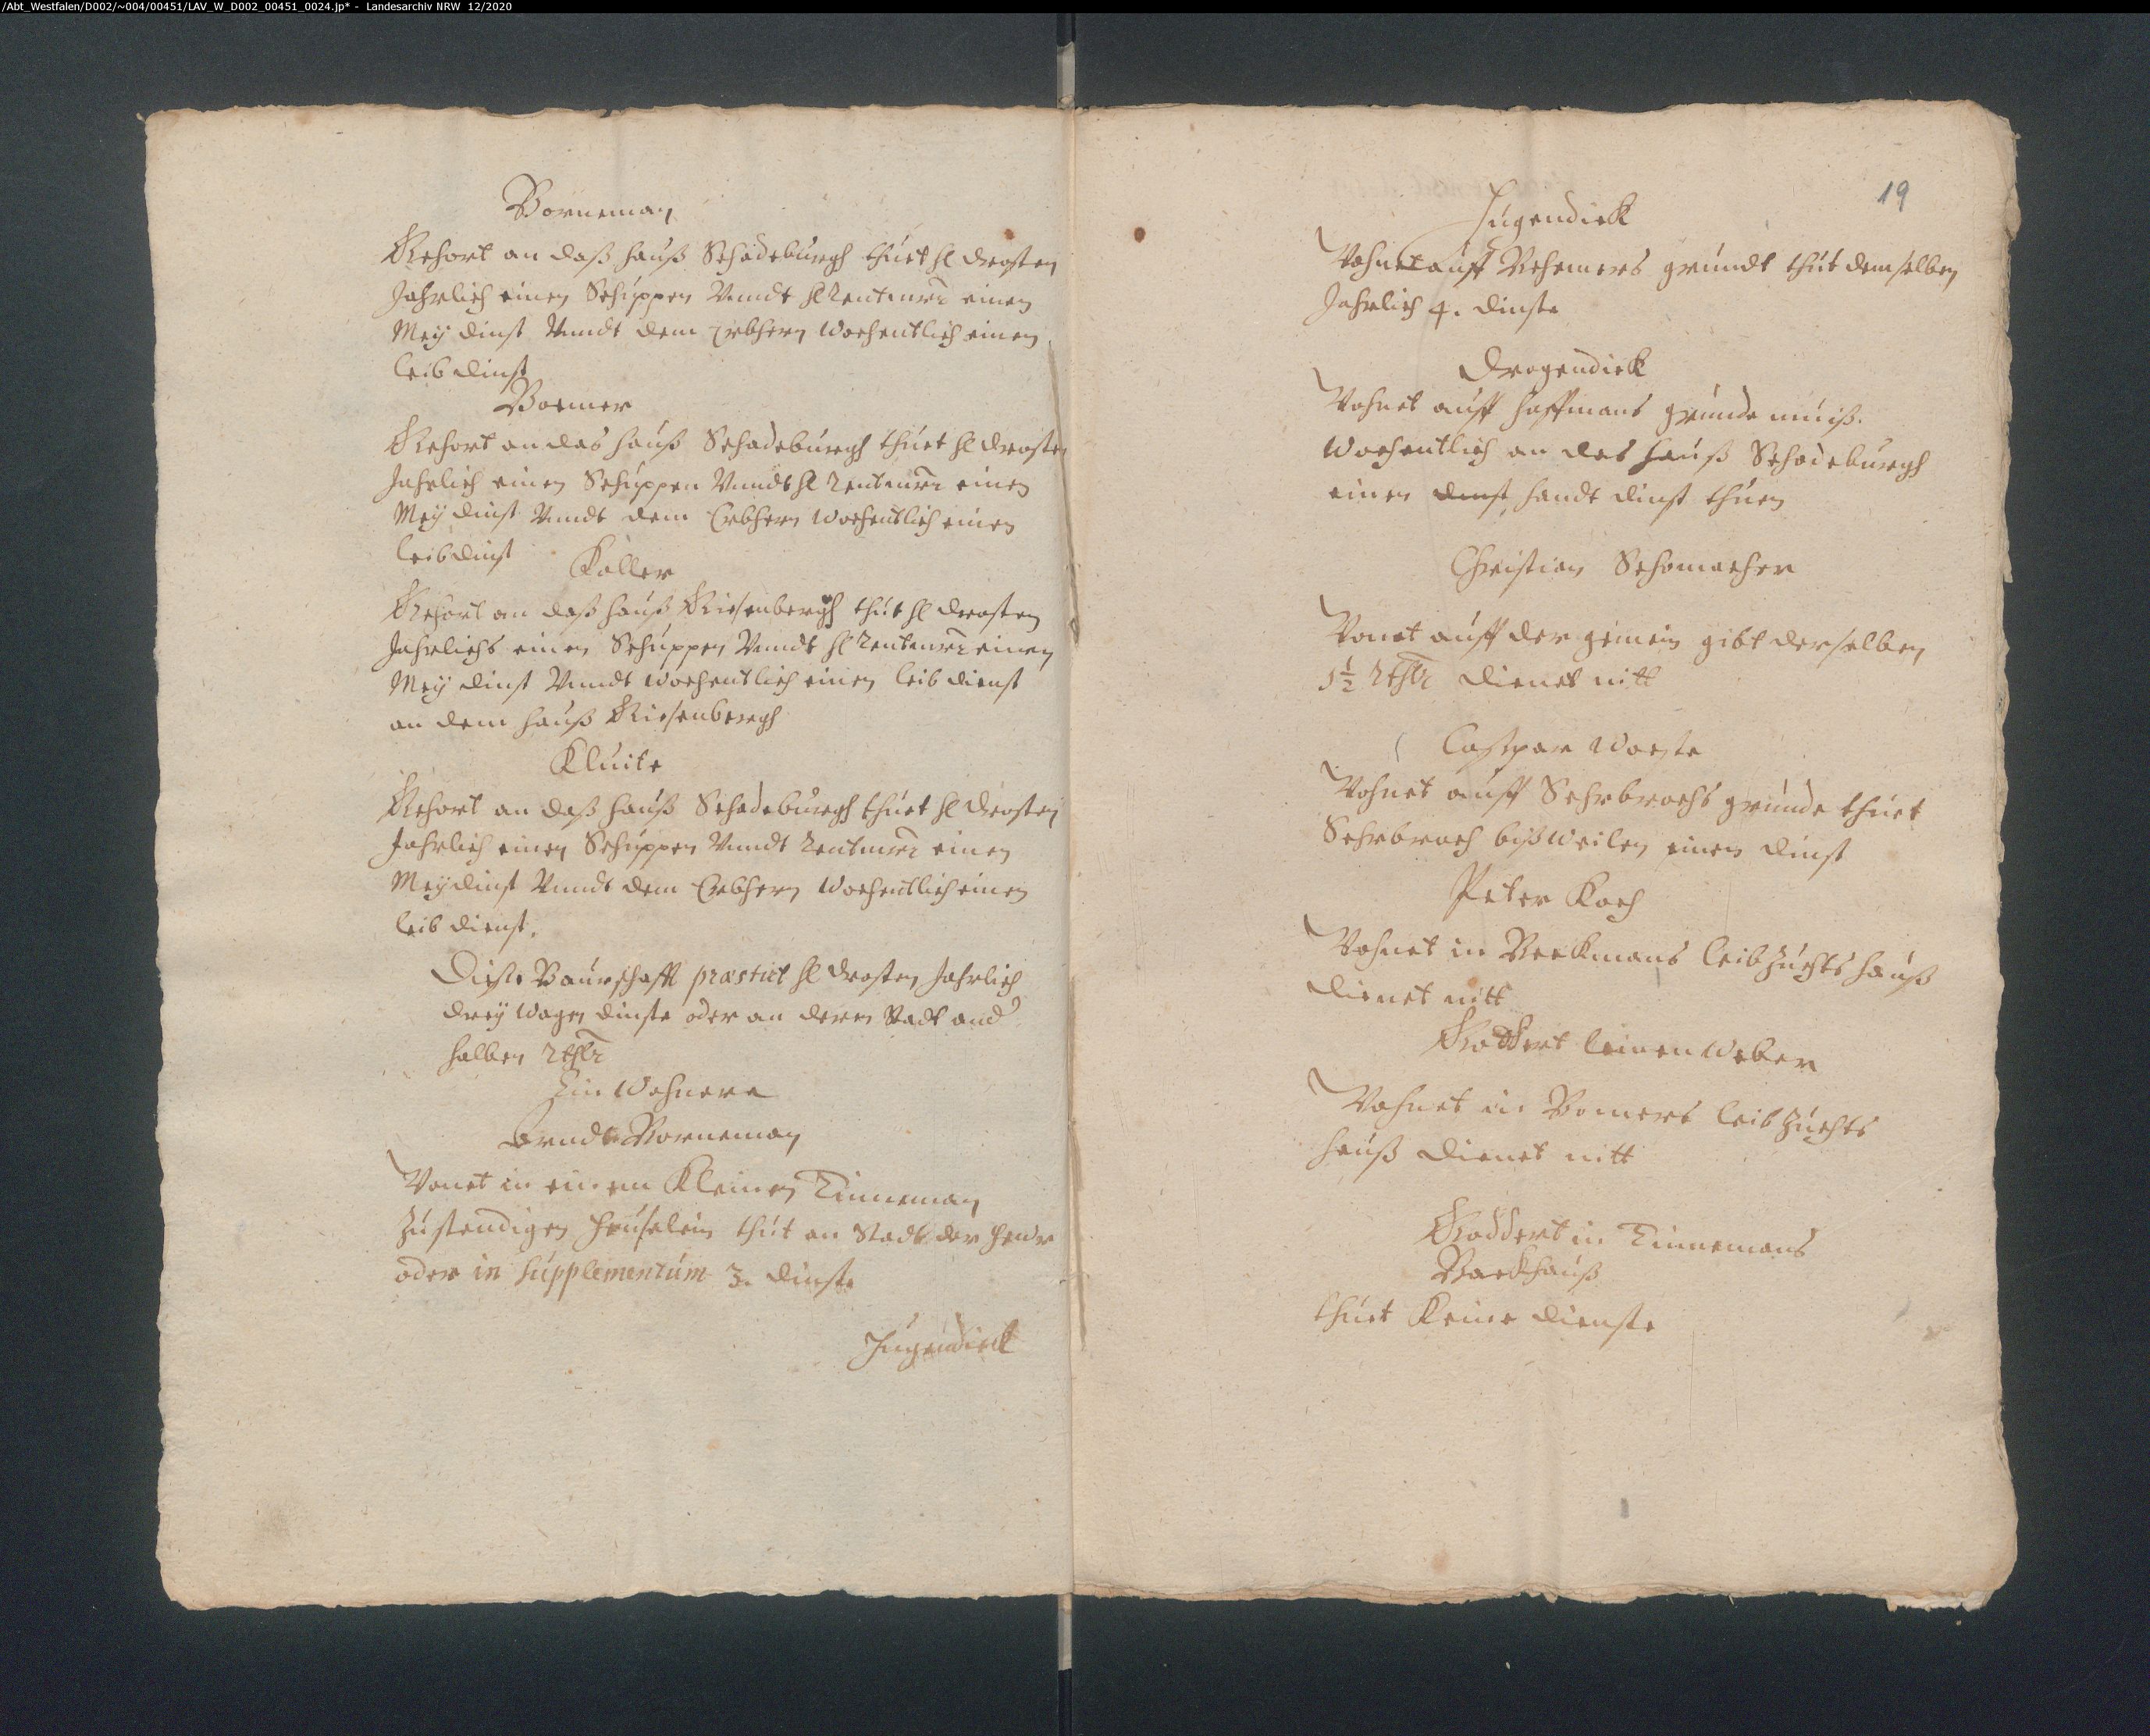 /Abt_Westfalen/D002/~004/00451/LAV_W_D002_00451_0024.jp* - Landesarchiv NRW 12/2020
Borneman
Gehort an daß hauß Schadeburgh thuet hl drosten
Jahrlich einen Schuppen Vnndt hl Rentmr einen
Meij dinst Vnndt dem Erbhern Wochentlich einen
leib dinst
Boemer
Gehort an das hauß Schadeburgh thuet hl drosten
Jahrlich einen Schuppen Vnndt hl Rentmr einen
Meij dinst Vnndt dem Erbhern Wochentlich einen
leibdinst
Koller
Gehort an daß hauß Griesenbergh thut hl drosten
Jahrlichs einen Schuppen Vnndt hl Rentmr einen
Meij dinst Vnndt Wochentlich einen leib dienst
an dem hauß Griesenbergh
Kluite
Gehort an daß hauß Schadeburgh thuet hl drosten
Jahrlich einen Schuppen Vnndt Rentmr einen
Meijdinst Vnndt dem Erbhern Wochentlich einen
leib dienst.
Diese Baurschafft præstirt hl drosten Jahrlich
dreij Wagen dinste oder an deren Stadt and
halben Rthlr
Ein Wohnere
Arndt Borneman
Vonet in einem Kleinen Tinneman
zustendigen heuselein thut an Stadt der
oder in supplementum 3. dinste
Jugendiek
19
Jugendiek
Vohnet auff Behemers grundt thut demselben
Jahrlich 4. dinste
Drogendiek
Vohnet auff Hoffmans grunde muiß.
Wochentlich an das hauß Schadeburgh
einen dinst handt dinst thuen
Christian Schomacher
Vonet auff der gemein gibt derselben
1½ Rthlr dienet nitt
Caspar Woeste
Vohnet auff Sehrbrochs grunde thuet
Sehrbroch bißweilen einen dinst
Peter Koch
Vohnet in Beckmans leibzuchts hauß
dienet nitt
Goddert leinenweber
Vohnet in Bomers leibzuchts
hauß dienet nitt
Goddert in Tinnemans
Backhauß
thuet Keine dienste